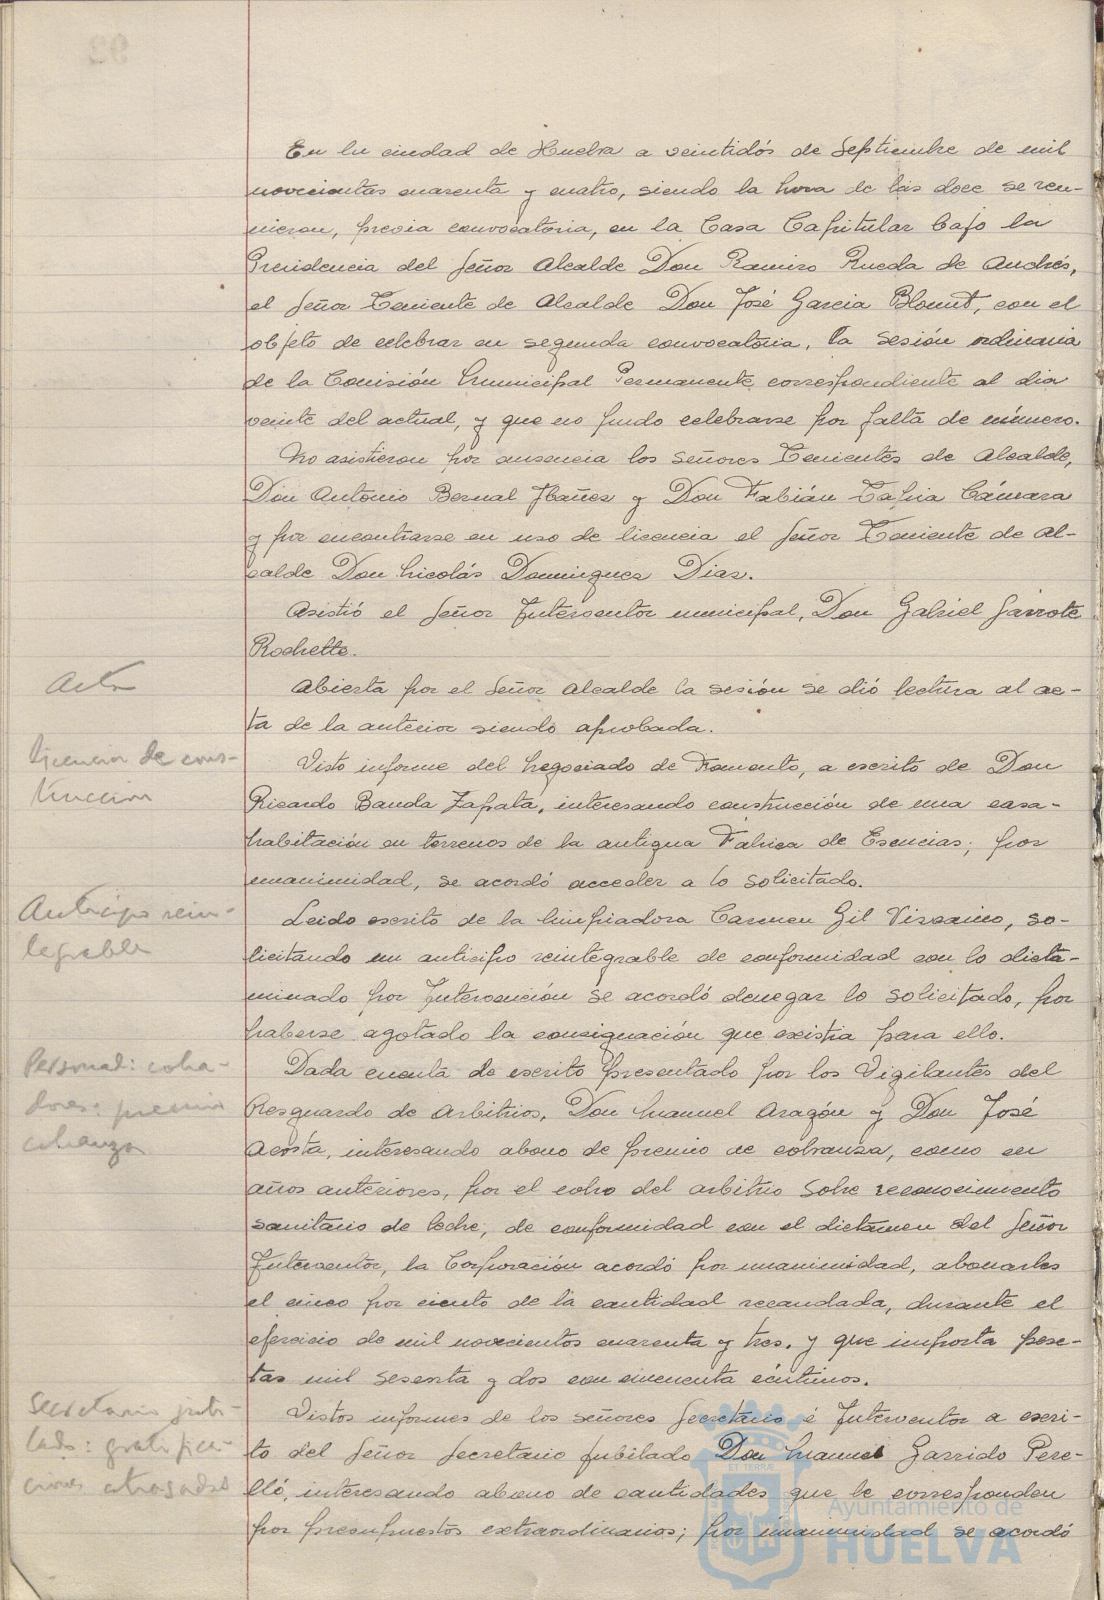 En la ciudad de Huelva a veintidós de Septiembre de mil
novecientas cuarenta y cuatro, siendo la hora de las doce se reu-
nieron, previa convocatoria, en la Casa Capitular bajo la
Presidencia del Señor Alcalde Don Ramiro Rueda de Andrés,
el Señor Teniente de Alcalde Don José Garcia Blount, con el
objeto de celebrar en segunda convocatoria, la sesión ordinaria
de la Comisión Municipal Permanente correspondiente al dia
veinte del actual, y que no pudo celebrarse por falta de número.
No asistieron por ausencia los señores Tenientes de Alcalde,
Don Antonio Bernal Ibañez y Don Fabián Tapia Cámara
y por encontrarse en uso de licencia el Señor Teniente de Al-
calde Don Nicolás Dominguez Diaz.
Asistió el Señor Interventor municipal, Don Gabriel Garrote
Rochette.
Acta
Abierta por el Señor Alcalde la sesión se dió lectura al ac-
ta de la anterior siendo aprobada.
licencia de cons-
trucción
Visto informe del Negociado de Fomento, a escrito de Don
Ricardo Banda Zapata, interesando construcción de una casa-
habitación en terrenos de la antigua Fabrica de Esencias; por
unanimidad, se acordó acceder a lo solicitado.
Anticipo rein-
tegrable
Leido escrito de la limpiadora Carmen Gil Viscaino, so-
licitando un anticipo reintegrable de conformidad con lo dicta-
minado por Intervención se acordó denegar lo solicitado, por
haberse agotado la consignación que existia para ello.
Personal: cobra-
dores: premio
cobranza
Dada cuenta de escrito presentado por los Vigilantes del
Resguardo de Arbitrios, Don Manuel Aragón y Don José
Acosta, interesando abono de premio de cobranza, como en
años anteriores, por el cobro del arbitrio sobre reconocimiento
sanitario de leche, de conformidad con el dictamen del Señor
Interventor, la Corporación acordó por unanimidad, abonarles
el cinco por ciento de la cantidad recaudada, durante el
ejercicio de mil novecientos cuarenta y tres. y que importa pese-
tas mil sesenta y dos con cincuenta céntimos.
Secretario jubi-
lado: gratifica-
ciones atrasadas
Vistos informes de los señores Secretario é Interventor a escri-
to del Señor Secretario jubilado Don Manuel Garrido Pere-
lló, interesando abono de cantidades que le corresponden
por presupuestos extraordinarios; por unanimidad se acordó
Ayuntamiento de
HUELVA